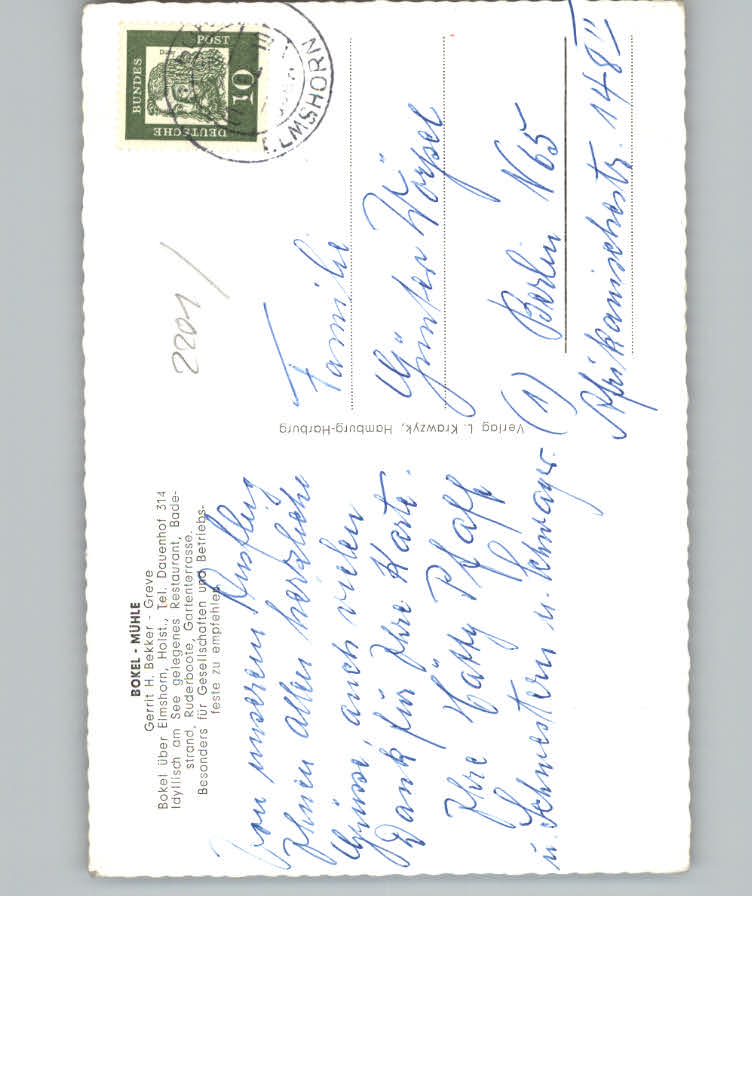 BOKEL - MÜHLE
Gerrit H. Bekker - Greve
Bokel über Elmshorn, Holst., Tel. Dauenhof 314
Idyllisch am See gelegenes Restaurant, Bade-
strand, Ruderboote, Gartenterrasse.
Besonders für Gesellschaften und Betriebs-
feste zu empfehlen
Von unserem Ausflug
Ihnen allen herzliche
Grüsse, auch vielen
Dank für Ihre Karte.
Ihre Pfaff
u. Schwestern u. Schwager.
Verlag L. Krawzyk, Hamburg-Harburg
DEUTSCHE
BUNDES
POST
10
ELMSHORN
2201/
Familie
Günter Wörpel
(1) Berlin N 65
Afrikanischestr. 148 II